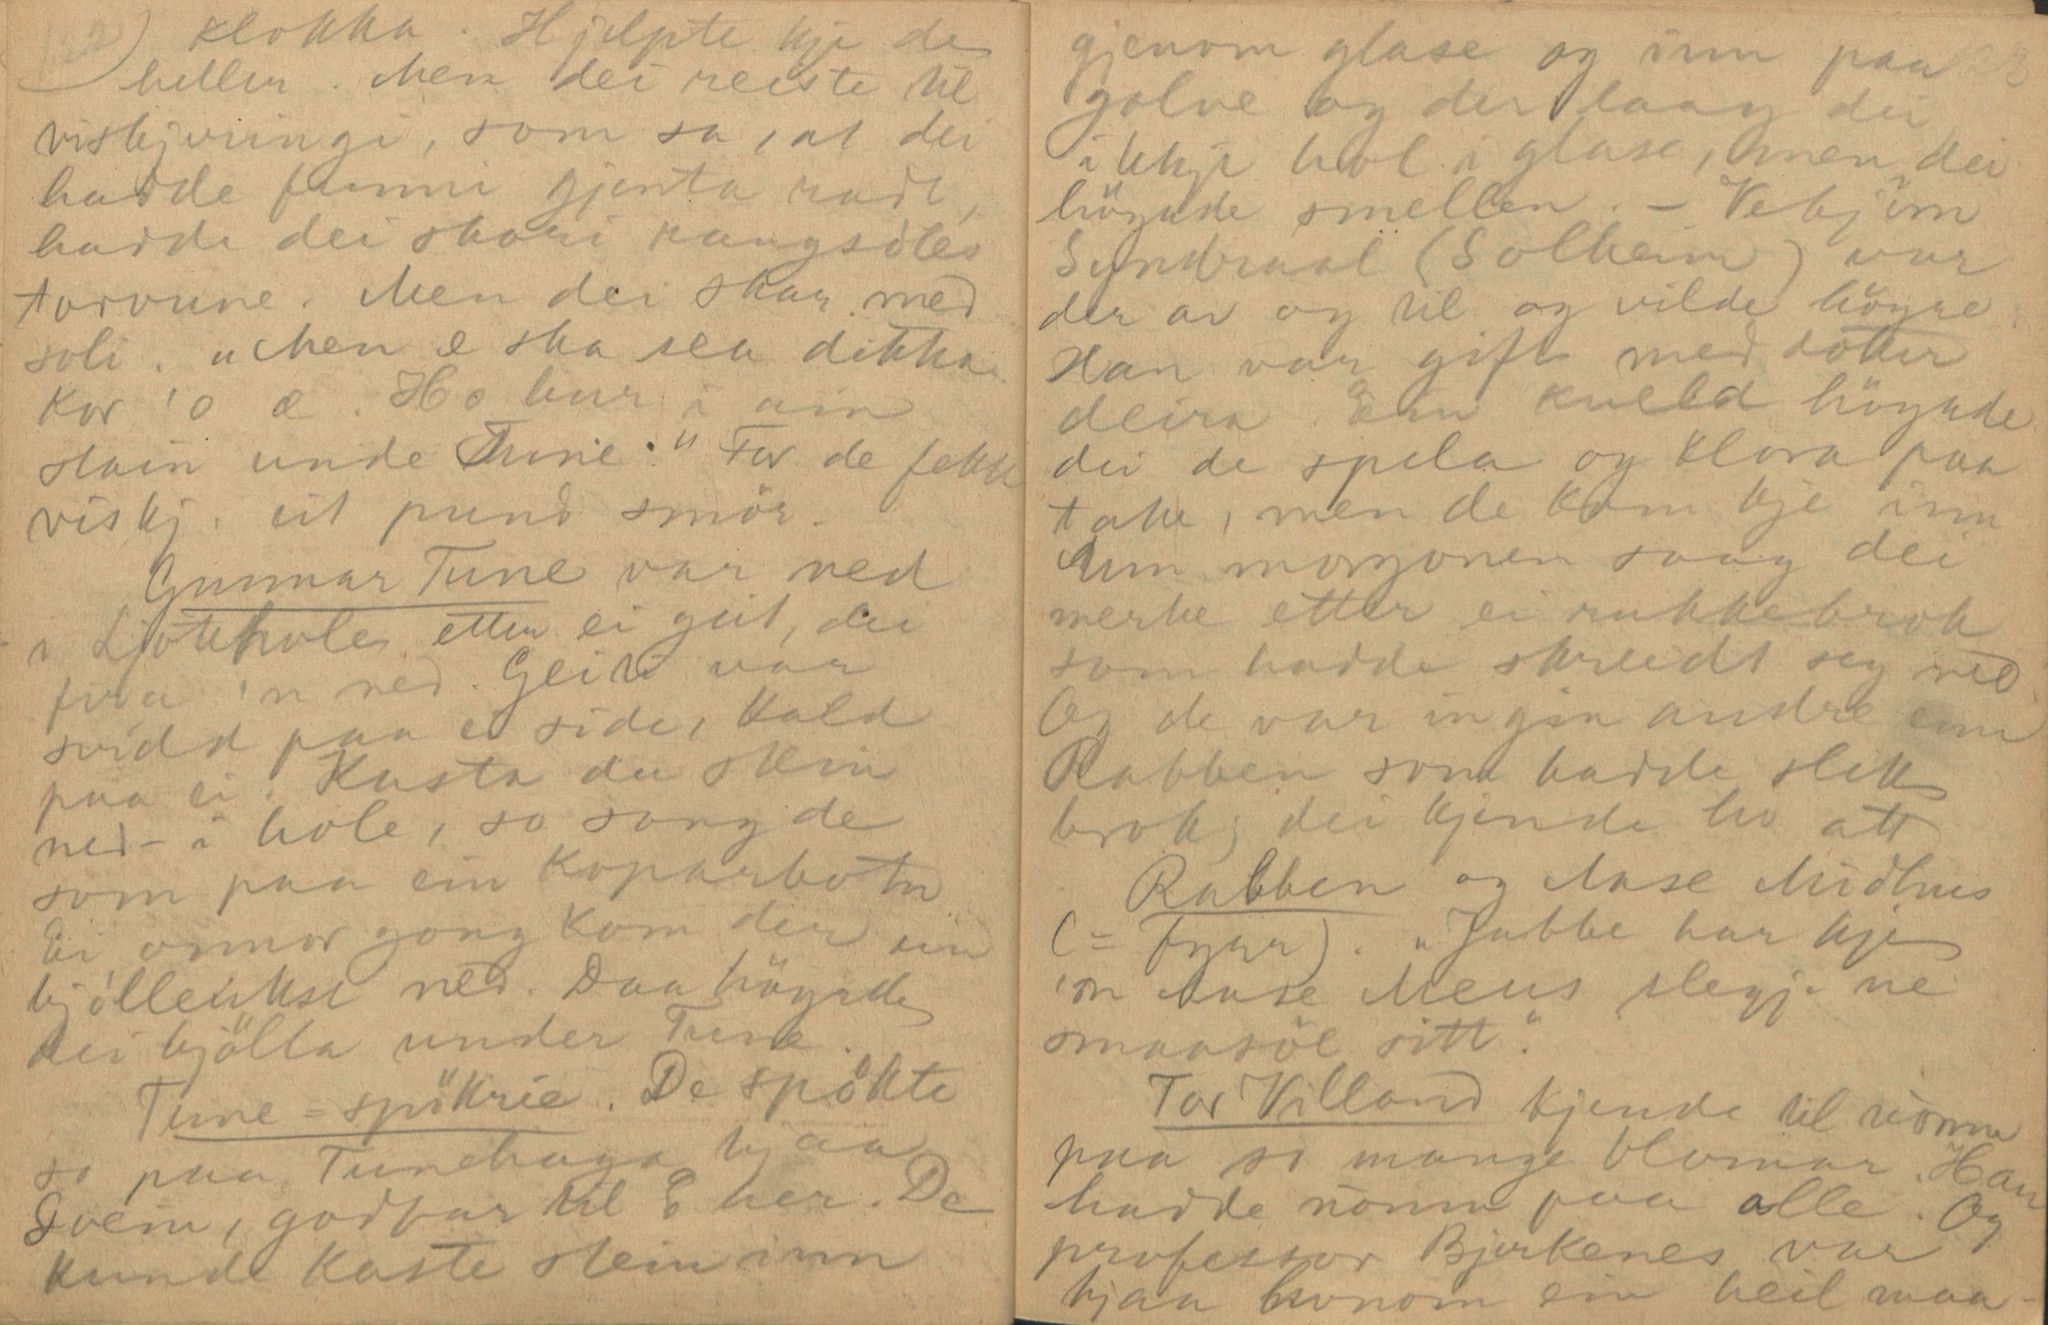 122) Klokka. Hjelpte kje de
heller. Men dei reiste til
viskjeringi, som sa, at dei
hadde funni gjenta radt,
hadde dei skori rangsöles
torvune. Men dei skar med
soli. "Men e ska sea dikka
kor 'o æ. Ho bur i ain
stain unde Tune." For de fekk
viskj. eit pund smör.
Gunnar Tune var ned
i Ljötehole etter ei geit, dei
fira 'n ned. Geiti var
svidd paa ei side, kald
paa ei. Kasta du stein
ned i hole, so song de
som paa ein koparbotn
Ei onnor gong kom der ein
bjölleukse ned. Daa höyrde
dei bjölla under Tune.
Tune-spökrie. De spökte
so paa Tunehaga hjaa
Svein, godfar til E her. De
kunde kaste stein inn
gjenom glase og inn paa 123
golve og der laag dei
ikkje hol i glase, men dei
höyrde smellen. - Vebjörn
Syndraal (Solheim) var
der av og til og vilde höyre.
Han var gift med dotter
deira. Ein kveld höyrde
dei de spela og klora paa
take, men de kom kje inn
Um morgonen saag dei
merke etter ei rukkebrok
som hadde skreidt seg ned
Og de var ingin andre enn
Rabben som hadde slik
brok; dei kjende ho att
Rabben og Aase Midhus
(= Fyar). "Jabbe har kje
'on Aase Meus slegje ne
smaasöl sitt."
Tor Villand kjende til nomn
paa so mange blomar. Han
hadde nomn paa alle. Og
professor Bjerkenes var
hjaa honom ein heil maa-